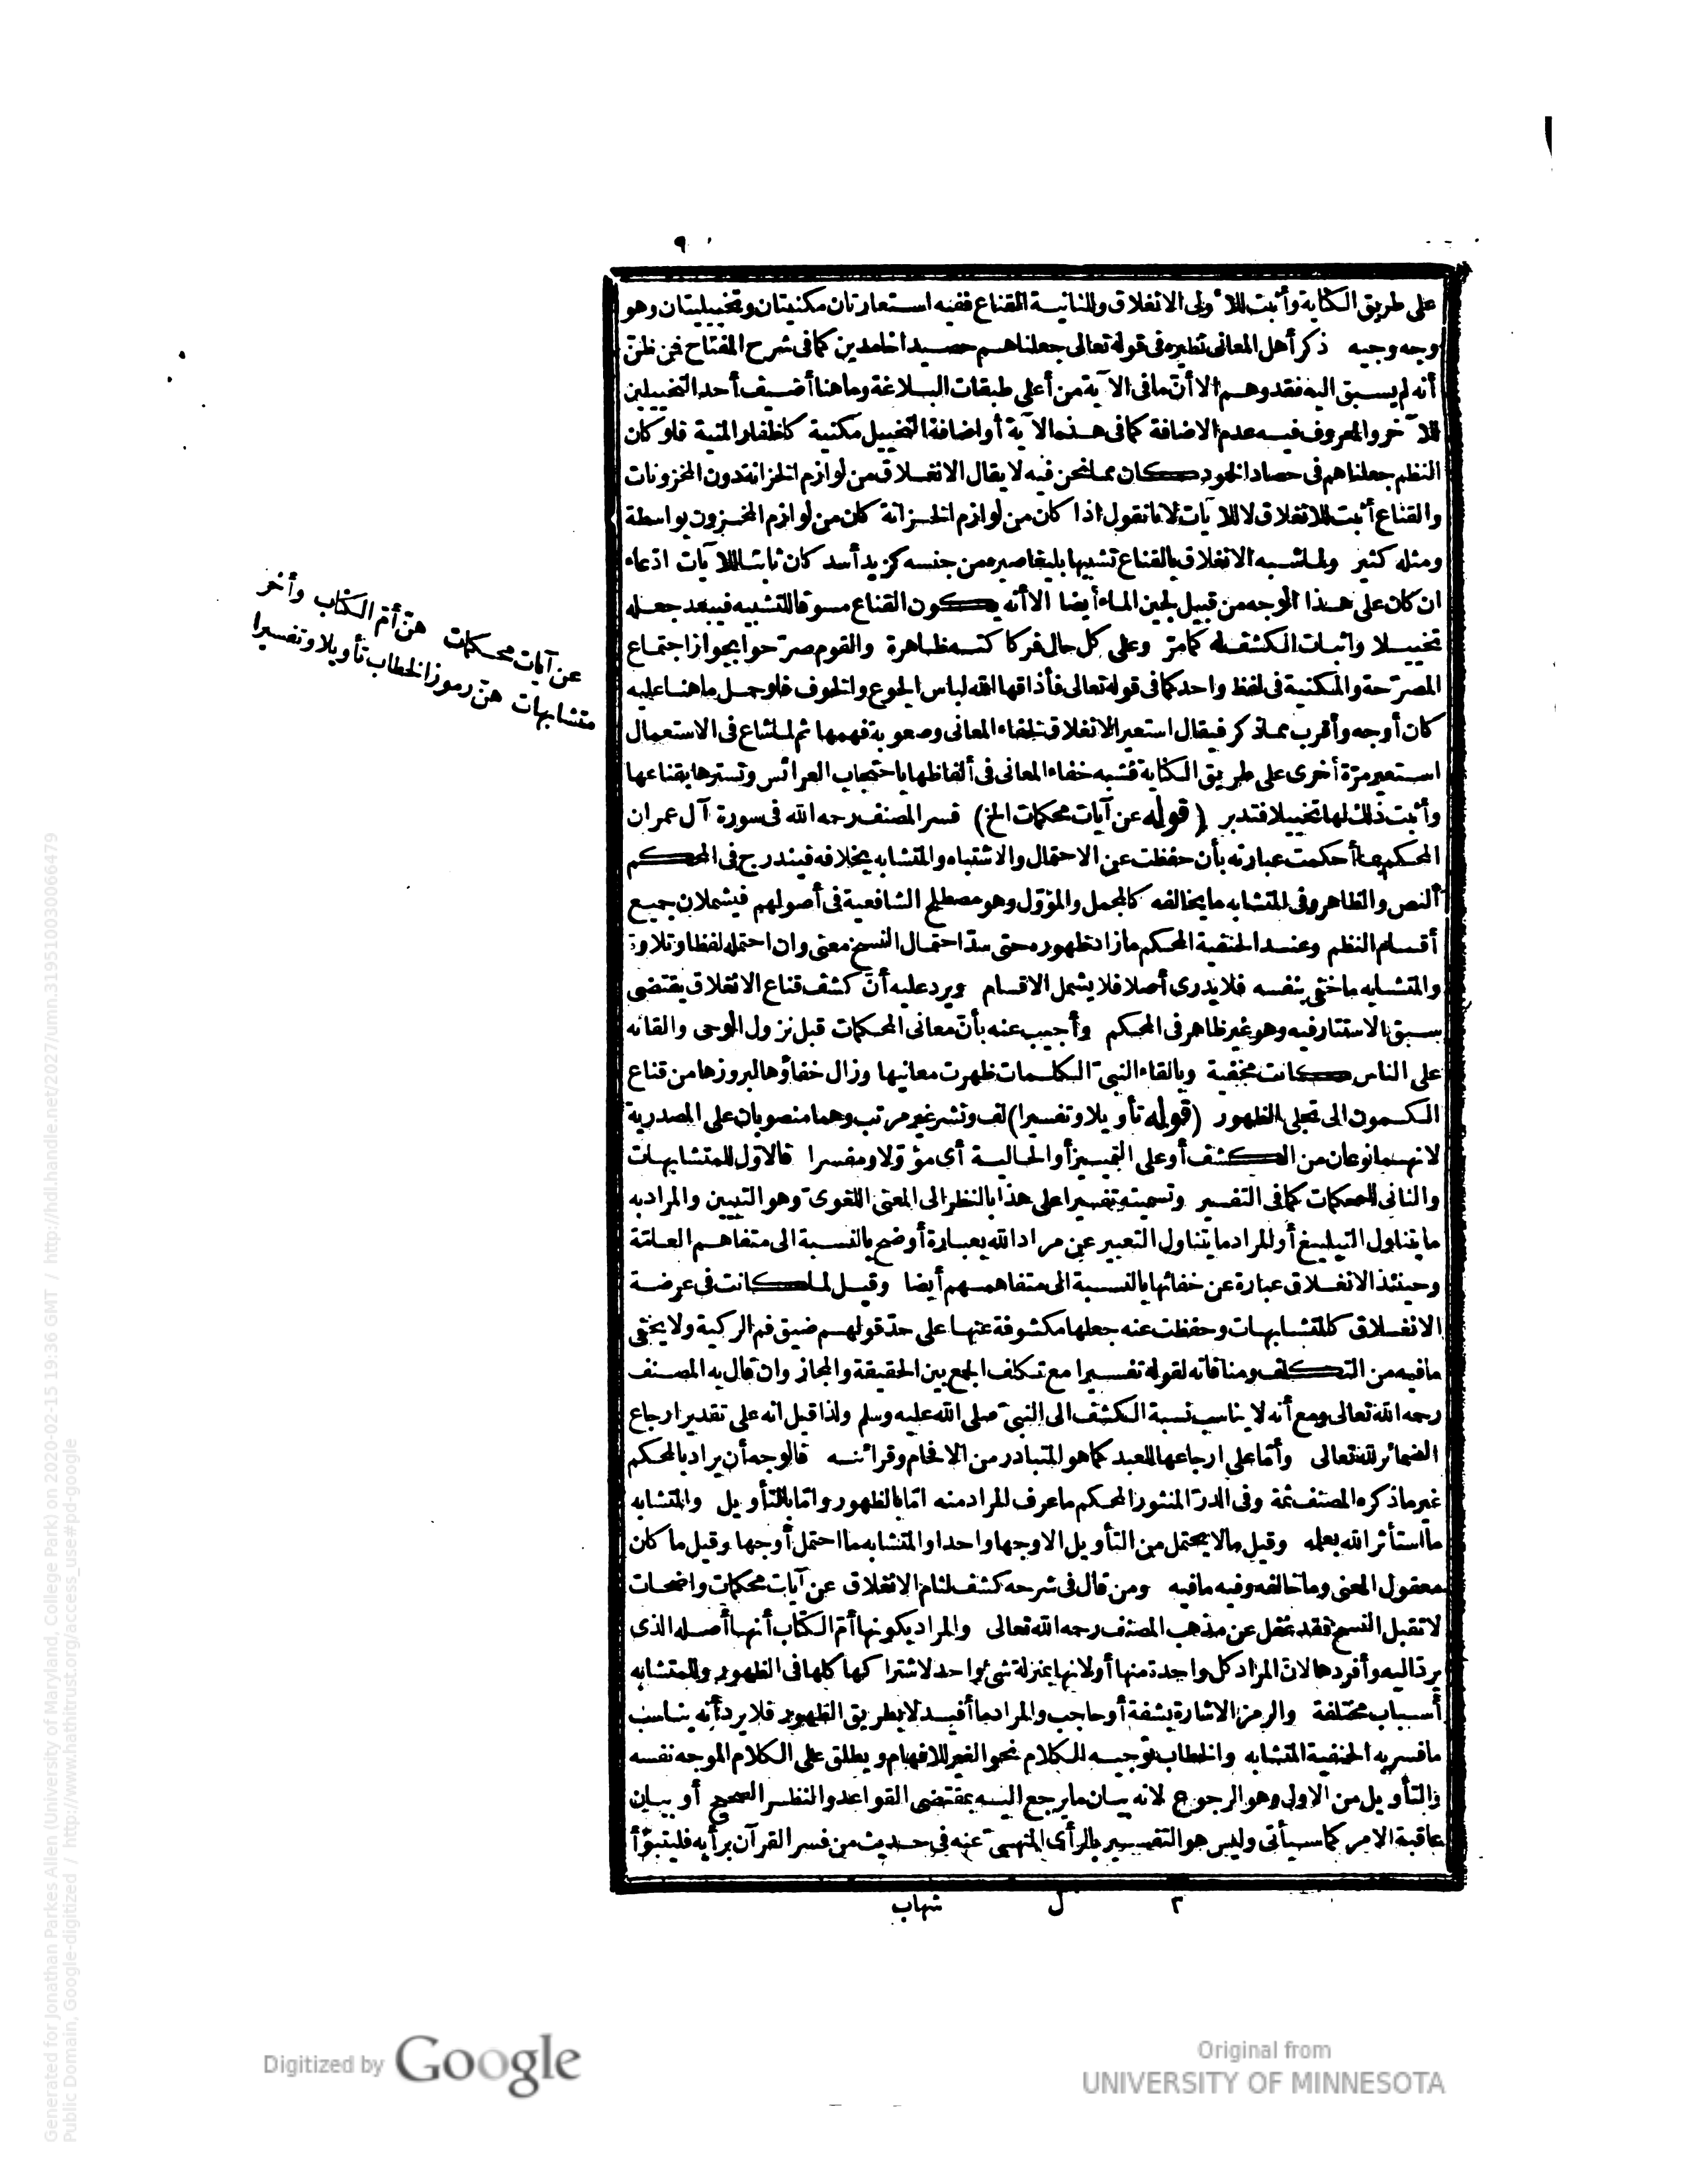 ٩
على طريق الكناية وأثبت للاولى الانغلاق وللثانيـة القناع ففيه استعارتان مكنيتان وتخييليتان وهو
وجه وجيه ذكر أهل المعانى نظيره فى قوله تعالى جعلناهم حصيدا خامدين كما فى شرح المفتاح فمن ظن
أنه لم يسبق اليه فقد وهم الا أن ما فى الآية من أعلى طبقات البلاغة وما هنا أضيف أحد التخييلين
للآخر والمعروف فيه عدم الاضافة كما فى هذه الآية أو اضافة التخييل مكنية كاظفار المنية فلو كان
النظم جعلناهم فى حصاد الخمود كان مما نحن فيه لا يقال الانغلاق من لوازم الخزانة دون المخزونات
والقناع أثبت للانغلاق لا للآيات لانا نقول اذا كان من لوازم الخزانة كان من لوازم المخزون بواسطة
ومثله كثير ولما شبه الانغلاق بالقناع تشبيها بليغا صيره من جنسه كزيد أسد كان ثابتا للآيات ادعاء
ان كان على هذا الوجه من قبيل لجين الماء أيضا الا أنه يكون القناع مسوقا للتشبيه فيبعد جعله
تخييلا واثبات الكشف له كما مرّ وعلى كل حال فركاكته ظاهرة والقوم صرّحوا بجواز اجتماع
المصرّحة والمكنية فى لفظ واحد كما فى قوله تعالى فأذاقها الله لباس الجوع والخوف فلو حمل ما هنا عليه
كان أوجه وأقرب مما ذكر فيقال استعير الانغلاق لخفاء المعانى وصعوبة فهمها ثم لما شاع فى الاستعمال
استعير مرّة أخرى على طريق الكناية فشبه خفاء المعانى فى ألفاظها باحتجاب العرائس وتسترها بقناعها
وأثبت ذلك لها تخييلا فتدبر (قوله عن آيات محكمات الخ) فسر المصنف رحمه الله فى سورة آل عمران
المحكم بما أحكمت عبارته بأن حفظت عن الاحتمال والاشتباه والمتشابه بخلافه فيندرج فى المحكم
النص والظاهر وفى المتشابه ما يخالفه كالمجمل والمؤوّل وهو مصطلح الشافعية فى أصولهم فيشملان جميع
أقسام النظم وعند الحنفية المحكم ما زاد ظهوره حتى سدّ احتمال النسخ معنى وان احتمله لفظا وتلاوة
والمتشابه ما خفى بنفسه فلا يدرى أصلا فلا يشمل الاقسام ويرد عليه أنّ كشف قناع الانغلاق يقتضى
سبق الاستتار فيه وهو غير ظاهر فى المحكم وأجيب عنه بأنّ معانى المحكمات قبل نزول الوحى والقائه
على الناس كانت مخفية وبالقاء النبىّ الكلمات ظهرت معانيها وزال خفاؤها لبروزها من قناع
الكمون الى تجلى الظهور (قوله تأويلا وتفسيرا) لف ونشر غير مرتب وهما منصوبان على المصدرية
لانهما نوعان من الكشف أو على التمييز أو الحالية أى مؤوّلا ومفسرا فالاوّل للمتشابهات
والثانى للمحكمات كما فى التفسير وتسميته تفسيرا على هذا بالنظر الى المعنى اللغوىّ وهو التبيين والمراد به
ما يتناول التبليغ أو المراد ما يتناول التعبير عن مراد الله بعبارة أوضح بالنسبة الى متفاهم العامّة
وحينئذ الانغلاق عبارة عن خفائها بالنسبة الى متفاهمهم أيضا وقيل لما كانت فى عرضة
الانغلاق كالمتشابهات وحفظت عنه جعلها مكشوفة عنها على حدّ قولهم ضيق فم الركية ولا يخفى
ما فيه من التكلف ومنافاته لقوله تفسيرا مع تكلف الجمع بين الحقيقة والمجاز وان قال به المصنف
رحمه الله تعالى ومع أنه لا يناسب نسبة الكشف الى النبىّ صلى الله عليه وسلم ولذا قيل انه على تقدير ارجاع
الضمائر لله تعالى وأمّا على ارجاعها للعبد كما هو المتبادر من الافحام وقرائنه فالوجه أن يراد بالمحكم
غير ما ذكره المصنف ثمة وفى الدرّ المنثور المحكم ما عرف المراد منه امّا بالظهور وامّا بالتأويل والمتشابه
ما استأثر الله بعلمه وقيل ما لا يحتمل من التأويل الا وجها واحدا والمتشابه ما احتمل أوجها وقيل ما كان
معقول المعنى وما خالفه وفيه ما فيه ومن قال فى شرحه كشف لثام الانغلاق عن آيات محكمات واضحات
لا تقبل النسخ فقد غفل عن مذهب المصنف رحمه الله تعالى والمراد بكونها أمّ الكتاب أنها أصله الذى
يردّ اليه وأفردها لانّ المراد كل واحدة منها أو لانها بمنزلة شئ واحد لاشتراكها كلها فى الظهور وللمتشابه
أسباب مختلفة والرمز الاشارة بشفة أو حاجب والمراد ما أفيد لا بطريق الظهور فلا يرد أنه يناسب
ما فسر به الحنفية المتشابه والخطاب توجيه الكلام نحو الغير للافهام ويطلق على الكلام الموجه نفسه
والتأويل من الاول وهو الرجوع لانه بيان ما يرجع اليه بمقتضى القواعد والنظر الصحيح أو بيان
عاقبة الامر كما سيأتى وليس هو التفسير بالرأى المنهىّ عنه فى حديث من فسر القرآن برأيه فليتبوّأ
٢ ل شهاب
عن آيات محكمات هنّ أمّ الكتاب وأخر
متشابهات هنّ رموز الخطاب تأويلا وتفسيرا
Generated for Jonathan Parkes Allen (University of Maryland, College Park) on 2020-02-15 19:36 GMT / http://hdl.handle.net/2027/umn.31951003006647​9
Public Domain, Google-digitized / http://www.hathitrust.org/access_use#pd-google
Digitized by Google
Original from
UNIVERSITY OF MINNESOTA